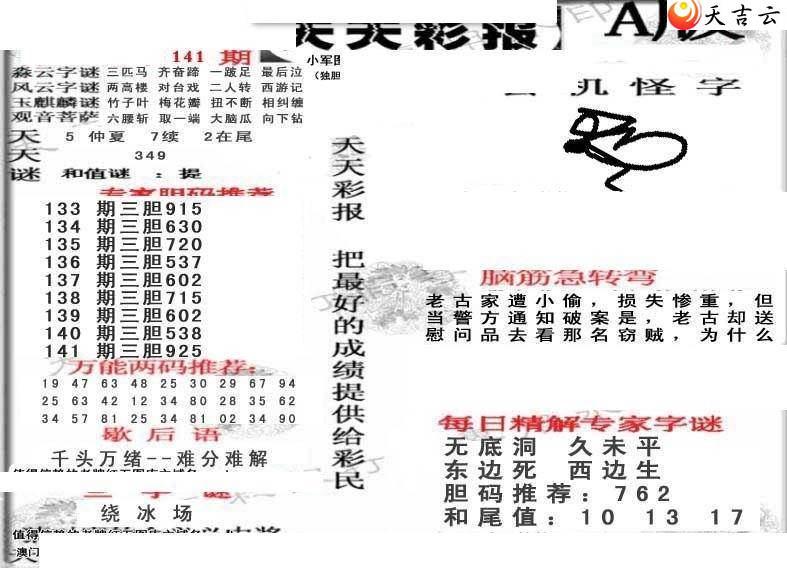 天吉云
天天彩报
141 期
小军
(独胆
森云字谜 三匹马 齐奋蹄 一跛足 最后泣
风云字谜 两高楼 对台戏 二人转 西游记
玉麒麟谜 竹子叶 梅花瓣 扭不断 相纠缠
观音菩萨 六腰斩 取一端 大脑瓜 向下钻
天 5 仲夏 7续 2在尾
天 349
谜 和值谜 : 提
专家胆码推荐
133 期三胆915
134 期三胆630
135 期三胆720
136 期三胆537
137 期三胆602
138 期三胆715
139 期三胆602
140 期三胆538
141 期三胆925
万能两码推荐:
19 47 63 48 25 30 29 67 94
25 63 42 12 34 80 28 35 62
34 57 81 25 34 81 02 34 90
歇后语
千头万绪--难分难解
字谜
绕冰场
值得
澳门
天
天天彩报 把最好的成绩提供给彩民
玑怪字
脑筋急转弯
老古家遭小偷，损失惨重，但
当警方通知破案是，老古却送
慰问品去看那名窃贼，为什么
每日精解专家字谜
无底洞 久未平
东边死 西边生
胆码推荐: 762
和尾值: 10 13 17